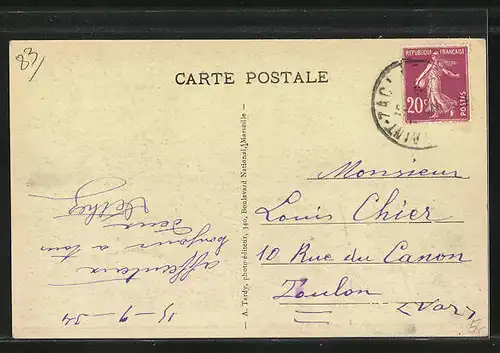 83/
CARTE POSTALE
REPUBLIQUE FRANÇAISE
20c
POSTES
AINT-ZAC
Monsieur
Louis Chier
10 Rue du Canon
Toulon
Var
A. Tardy, photo-éditeur, 340, Boulevard National, Marseille
15-9-34
affectueux
bonjour a tous
deux